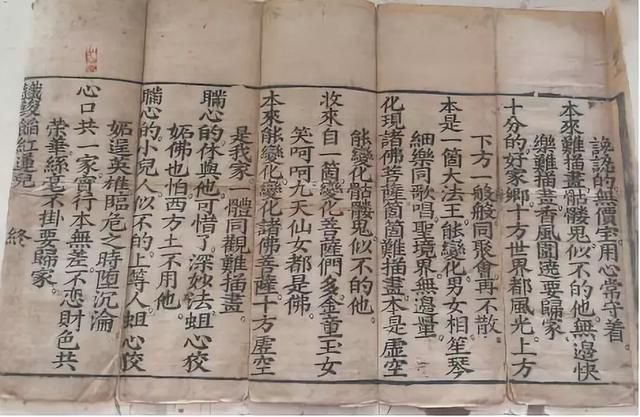 說說的無價宝用心常守着
本來難描畫骷髏鬼似不的他無邊快
樂難描畫香風圖選要歸家
十分的好家鄉十方世界都風光上方
下方一般般同聚會再不散
本是一箇大法王能變化男女相笙琴
細樂同歌唱聖境界無邊量
化現諸佛菩薩箇箇難描畫本是虛空
能變化骷髏鬼似不的他
收來自一箇變化菩薩們多金童玉女
笑呵呵九天仙女都是佛
本來能變化變化諸佛菩薩十方虛空
是我家一體同觀難描畫
瞞心的休與他可惜了深妙法蛆心狡
妬佛也怕西方土不用他
瞞心的小兒人似不的上等人蛆心狡
妬逞英雄臨危之時堕沉淪
心口共一家實行本無差不恋財色共
榮華絲毫不掛要歸家
紅蓮 終